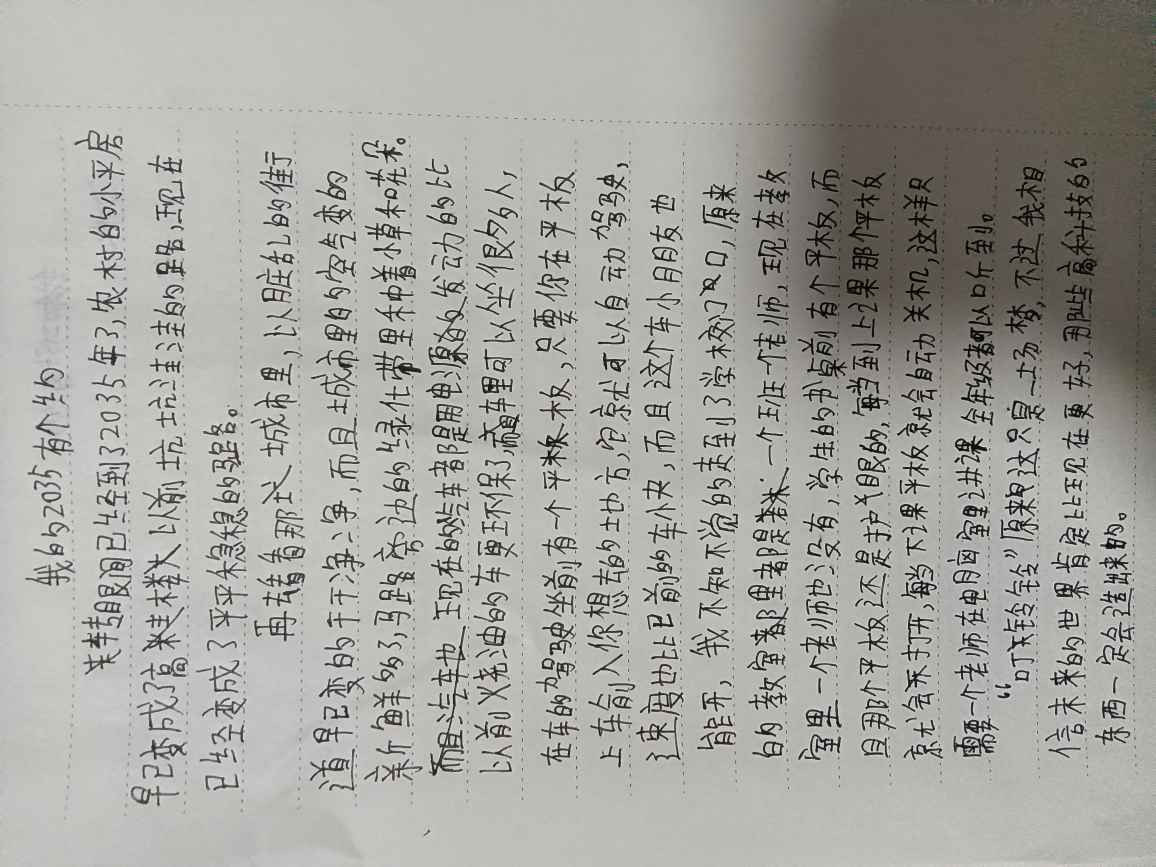 我的2035有个约
转眼间已经到了2035年了,农村的小平房
早已变成了高楼大 以前坑坑洼洼的路,现在
已经变成了平平稳稳的路。
再去看看那大城市里,以脏乱的街
道早已变的干干净净,而且城市里的空气变的
新鲜多了,马路旁边的绿化带里种着小草和花朵。
而且汽车也 现在的汽车都是用电源的发动的比
以前烧油的车更环保了,车里可以坐很多人,
在车的驾驶坐前有一个平板,只要你在平板
上车俞入你想去的地方,它京尤可以自动驾驶,
速度也比已前的车快,而且这个车小朋友也
能开,我不知不觉的走到了学校门口,原来
的教室里都是一个班一个老师,现在教
室里一个老师也没有,学生的书桌前有个平板,而
且那个平板还是护眼的,每当到上课那个平板
京尤会打开,每当下课平板京尤会自动关机,这样只
需要一个老师在电脑室里讲课全年级都可以听到。
“叮铃铃”原来这只是一场梦,不过我相
信未来的世界肯定比现在更好,那些高科技的
东西一定会造出来的。